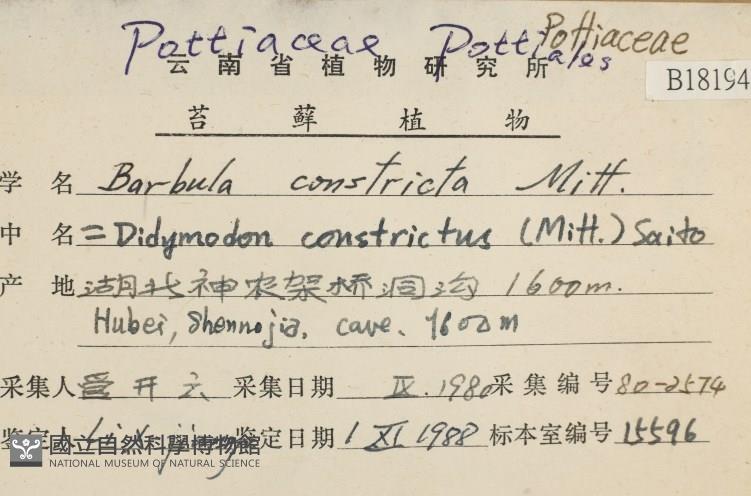 Pottiaceae Potti Pottiaceae
ales
云南省植物研究所
B18194
苔藓植物
学名 Barbula constricta Mitt.
中名 = Didymodon constrictus (Mitt.) Saito
产地 湖北神农架桥洞沟 1600m.
Hubei, Shennojia, cave. 1600m
采集人 开云 采集日期 IX. 1980 采集编号 80-2574
鉴定人 鉴定日期 1 XI 1988 标本室编号 15596
國立自然科學博物館
NATIONAL MUSEUM OF NATURAL SCIENCE